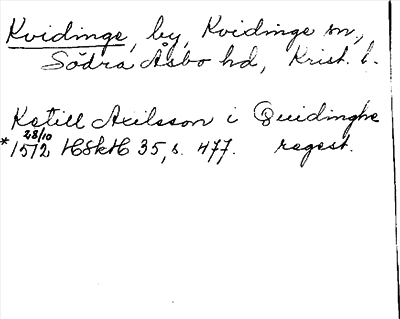 Kvidinge, by, Kvidinge sn,
Södra Åsbo hd, Krist. l.
Ketill Axilsson i Quidinghe
28/10
*1512 HSkH 35, s. 477. regest.